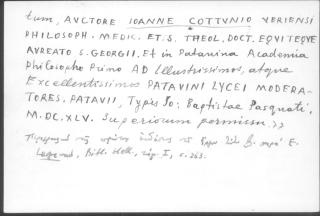 tum, AVCTORE IOANNE COTTVNIO VERIENSI
PHILOSOPH. MEDIC. ET. S. THEOL. DOCT. EQVITEQVE
AVREATO S. GEORGII, Et in Patauina Academia
Philosopho Primo AD Illustrissimos, atque
Excellentissimos PATAVINI LYCEI MODERA-
TORES. PATAVII, Typis Jo: Baptistae Pasquati,
M.DC.XLV. Superiorum permissu.»
Περιγραφὴ τῆς πρώτης ἐκδόσεως τοῦ ἔργου παρὰ E.
Legrand, Bibl. Hell., τόμ. I, σ. 363.